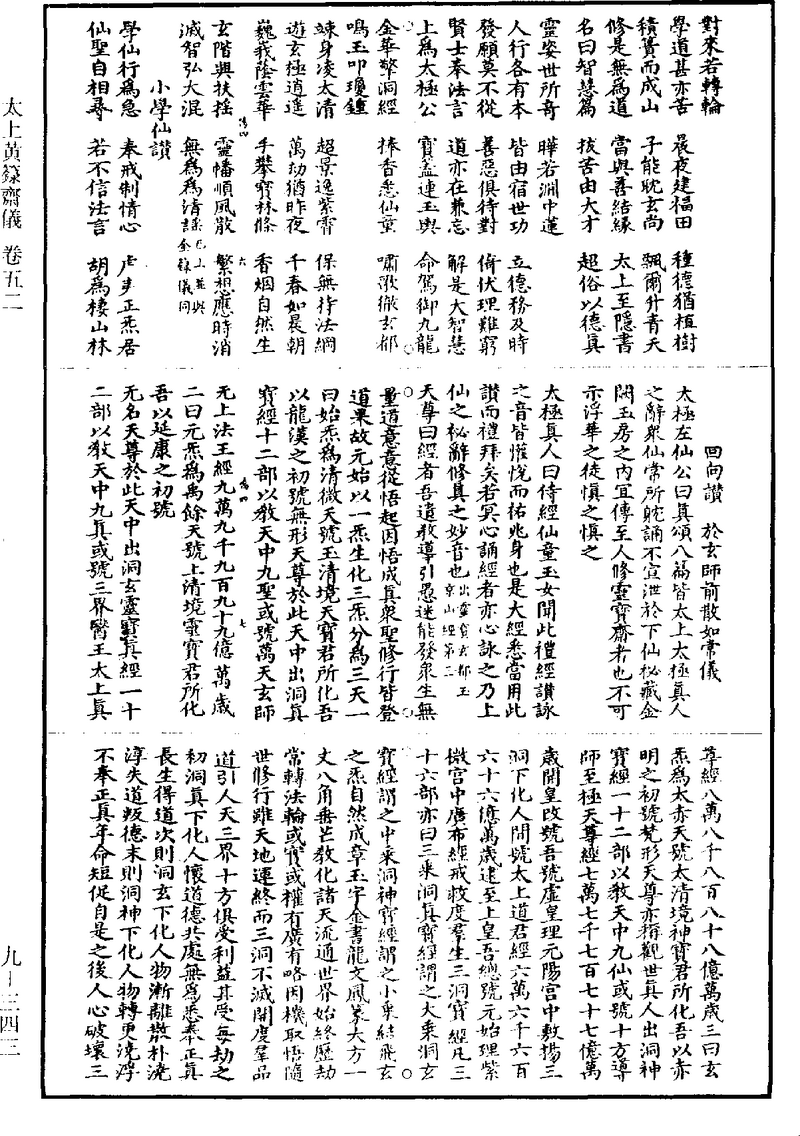 太上黃籙齋儀 卷五二
對來若轉輪 晨夜建福田 種德猶植樹
學道甚亦苦 積簣而成山 子能耽玄尚 飄爾升青天
修是無為道 當與善結緣 太上至隱書
名曰智慧篇 拔苦由大才 超俗以德真
靈姿世所奇 曄若淵中蓮
人行各有本 皆由宿世功 立德務及時
發願莫不從 善惡俱待對 倚伏理難窮
賢士奉法言 道亦在兼忘 解是大智慧
上為太極公 寶蓋連玉輿 命駕御九龍
金華擎洞經 捧香悉仙童 嘯歌徹玄都
鳴玉叩瓊鍾
竦身凌太清 超景逸紫霄 保無持法綱
遊玄極逍遥 萬劫猶昨夜 千春如晨朝
巍我蔭雲華 手攀寶林條 香烟自然生
玄階與扶搖 靈幡順風散 繁想應時消
滅智弘大混 無為為清謡已上並與金籙儀同
小學仙讚
學仙行為急 奉戒制情心 虛夷正炁居
仙聖自相尋 若不信法言 胡為棲山林
回向讚 於玄師前散如常儀
太極左仙公曰真頌八篇皆太上太極真人
之辭衆仙常所躭誦不宣泄於下仙秘藏金
闕玉房之内宜傳至人修靈寶齋者也不可
示浮華之徒慎之慎之
太極真人曰侍經仙童玉女聞此禮經讚詠
之音皆懽悦而祐兆身也是大經悉當用此
讚而禮拜矣若冥心誦經者亦心詠之乃上
仙之秘辭修真之妙音也出靈寶玄都玉京山經第二
天尊曰經者吾遺教導引愚迷能發衆生無
量道意意從悟起因悟成真衆聖修行皆登
道果故元始以一炁生化三炁分為三天一
曰始炁為清微天號玉清境天寶君所化吾
以龍漢之初號無形天尊於此天中出洞真
寶經十二部以教天中九聖或號萬天玄師
无上法王經九萬九千九百九十九億萬歲
二曰元炁為禹餘天號上清境靈寶君所化
吾以延康之初號
无名天尊於此天中出洞玄靈寶真經一十
二部以教天中九真或號三界醫王太上真
尊經八萬八千八百八十八億萬歲三曰玄
炁為太赤天號太清境神寶君所化吾以赤
明之初號梵形天尊亦稱觀世真人出洞神
寶經一十二部以教天中九仙或號十方導
師至極天尊經七萬七千七百七十七億萬
歲開皇改號吾號虛皇理元陽宮中敷揚三
洞下化人間號太上道君經六萬六千六百
六十六億萬歲逮至上皇吾總號元始理紫
微宮中廣布經戒救度羣生三洞寶經凡三
十六部亦曰三乘洞真寶經謂之大乘洞玄
寶經謂之中乘洞神寶經謂之小乘結飛玄
之炁自然成章玉字金書龍文鳳篆大方一
丈八角垂芒教化諸天流通世界始終歷劫
當轉法輪或實或權有廣有略因機取悟隨
世修行雖天地運終而三洞不滅開度羣品
道引人天三界十方俱受利益其受每劫之
初洞真下化人懷道德共處無為悉奉正真
長生得道次則洞玄下化人物漸離散朴澆
淳失道叛德末則洞神下化人物轉更澆浮
不奉正真年命短促自是之後人心破壞三
九-三四三